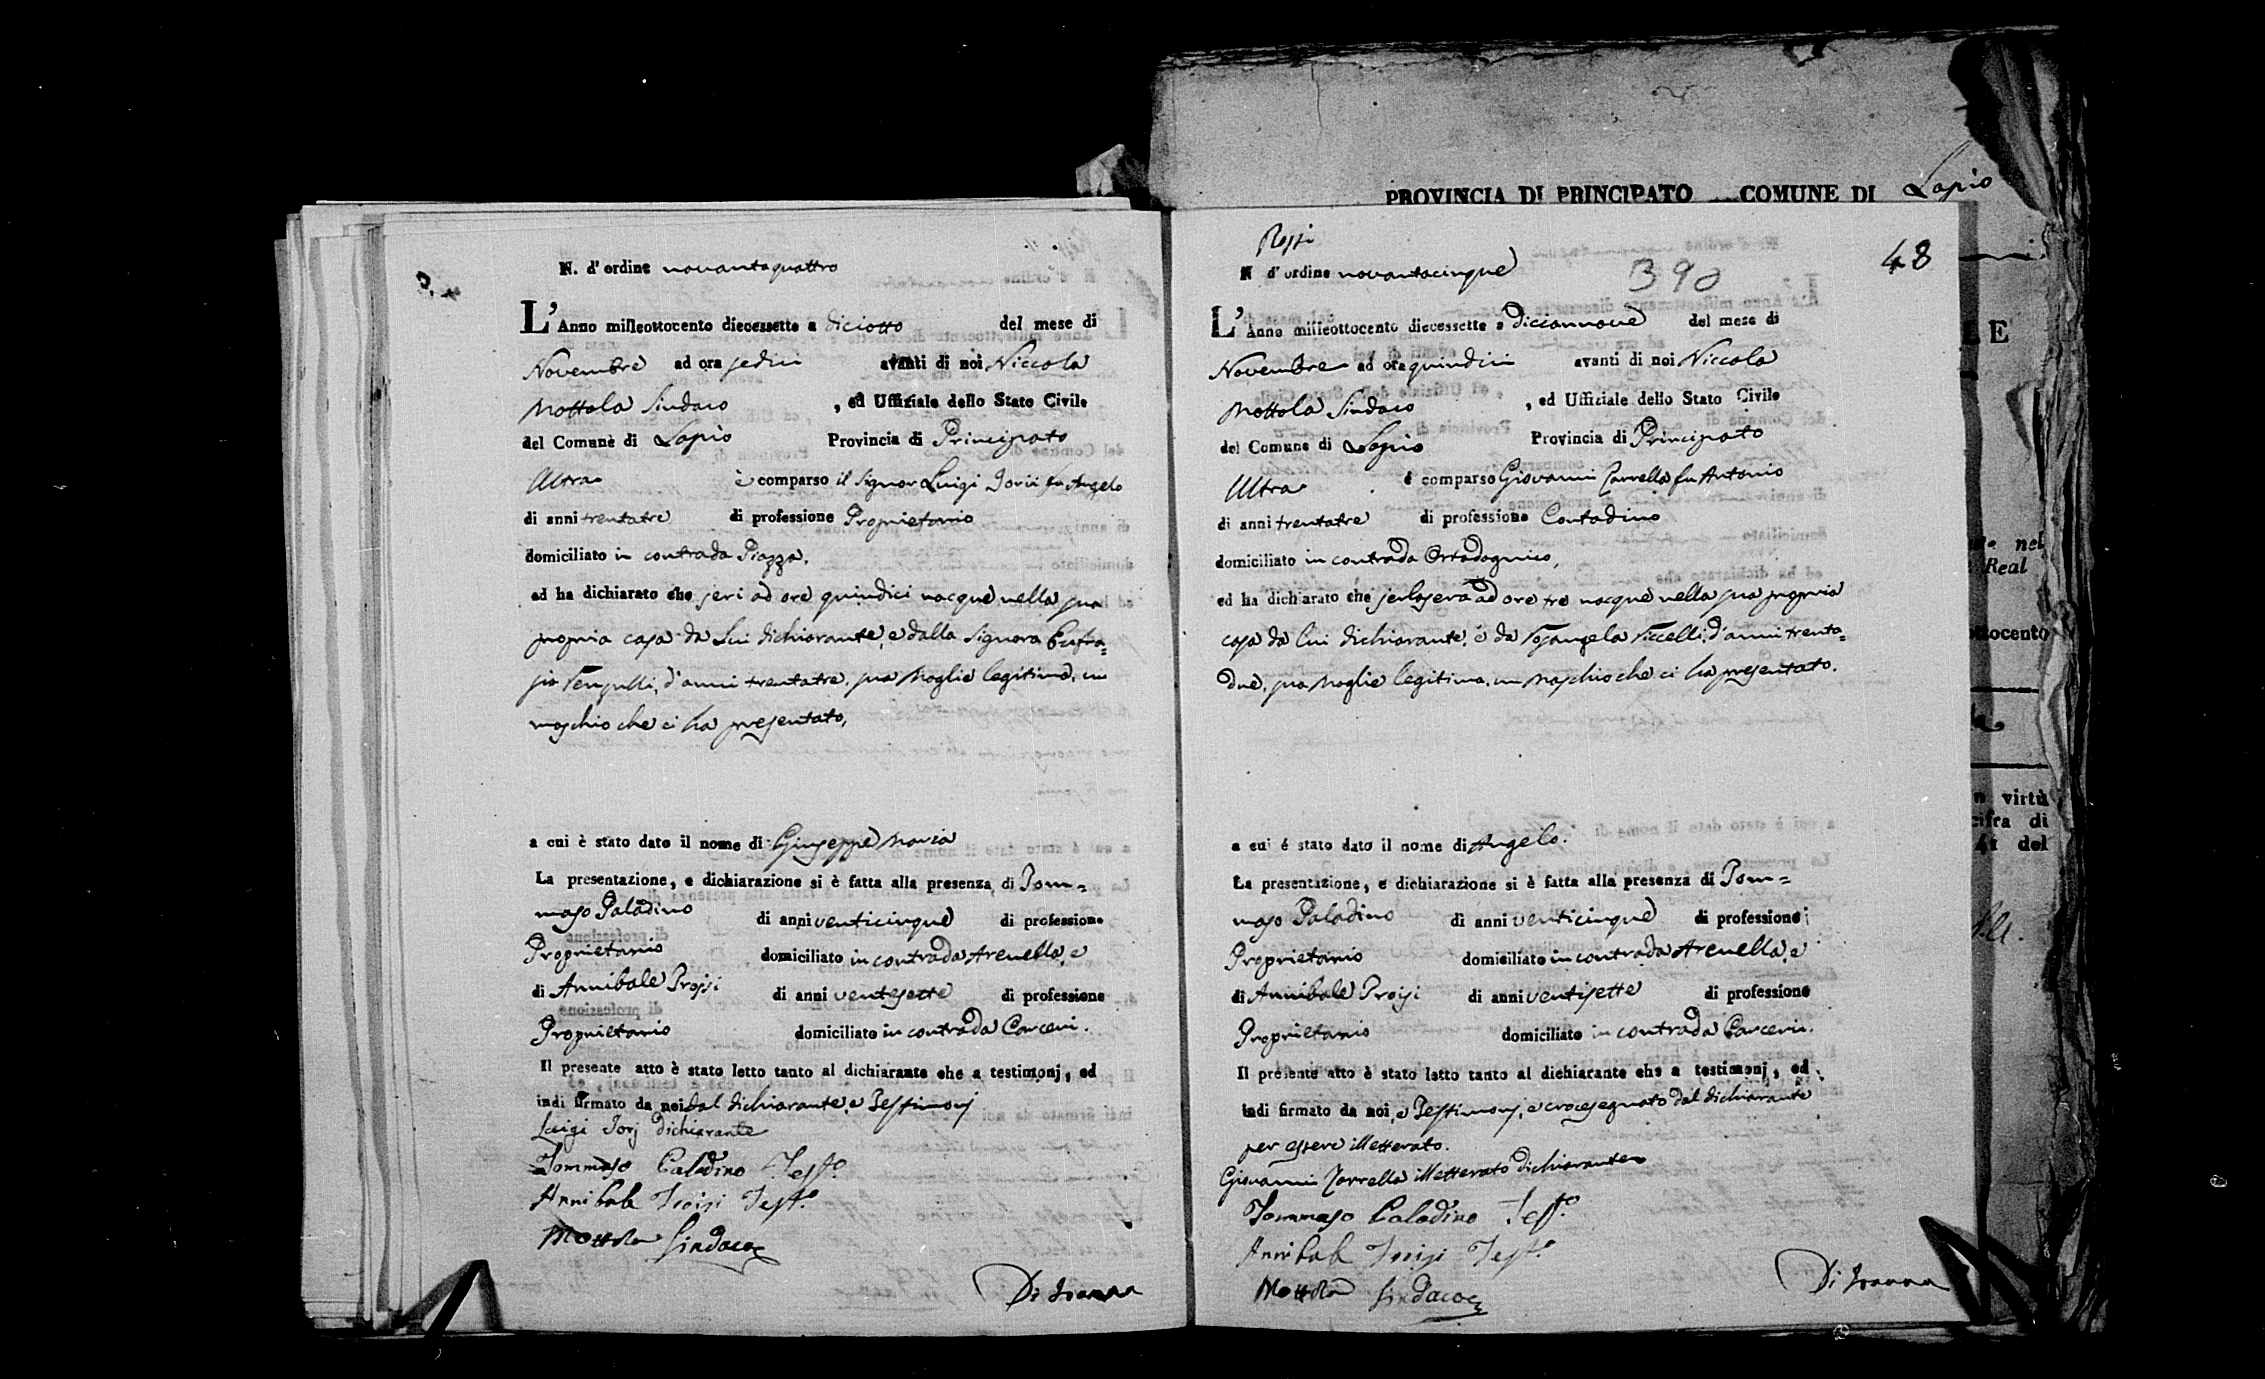 PROVINCIA DI PRINCIPATO COMUNE DI Lapio
N. d'ordine novantaquattro
L'Anno milleottocento diecessette a diciotto del mese di
Novembre ad ora sedici avanti di noi Niccola
Mottola Sindaco , ed Uffiziale dello Stato Civile
del Comune di Lapio Provincia di Principato
Ultra è comparso il Signor Luigi Jorii fu Angelo
di anni trentatre di professione Proprietario
domiciliato in contrada Piazza.
ed ha dichiarato che jeri ad ore quindici nacque nella sua
propria casa da Lui dichiarante, e dalla Signora Eufra=
sia d'anni trentatre. sua Moglie legitima, un
maschio che ci ha presentato,
a cui è stato dato il nome di Giuseppe Maria
La presentazione, e dichiarazione si è fatta alla presenza di Tom=
maso Paladino di anni venticinque di professione
Proprietario domiciliato in contrada Arenella, e
di Annibale Troisi di anni ventesette di professione
Proprietario domiciliato in contrada Carceri.
Il presente atto è stato letto tanto al dichiarante che a testimonj, ed
indi firmato da noi dal dichiarante, e Testimonj
Luigi Jorj dichiarante
Tommaso Paladino Test.o
Annibale Troisi Test.o
Mottola Sindaco
Di Ioanna
48
N d'ordine novantacinque
390
L'Anno milleottocento diecessette a diciannove del mese di
Novembre ad ora quindici avanti di noi Niccola
Mottola Sindaco , ed Uffiziale dello Stato Civile
del Comune di Lapio Provincia di Principato
Ultra è comparso Giovanni Zarrella fu Antonio
di anni trentatre di professione Contadino
domiciliato in contrada
ed ha dichiarato che jerlasera ad ore tre nacque nella sua propria
casa da lui dichiarante, e da Rosangela d'anni trenta=
due, sua Moglie legitima, un Maschio che ci ha presentato.
a cui é stato dato il nome di Angelo.
La presentazione, e dichiarazione si è fatta alla presenza di Tom=
maso Paladino di anni venticinque di professione
Proprietario domiciliato in contrada Arenella, e
di Annibale Troisi di anni ventisette di professione
Proprietario domiciliato in contrada Carceri.
Il presente atto è stato letto tanto al dichiarante che a testimonj, ed
indi firmato da noi, e Testimonj, e crocesegnato dal dichiarante
per essere illetterato.
Giovanni Zarrella illetterato dichiarante
Tommaso Paladino Test.o
Annibale Troisi Test.o
Mottola Sindaco
Di Ioanna
E
nel
Real
ottocento
virtù
cifra di
del